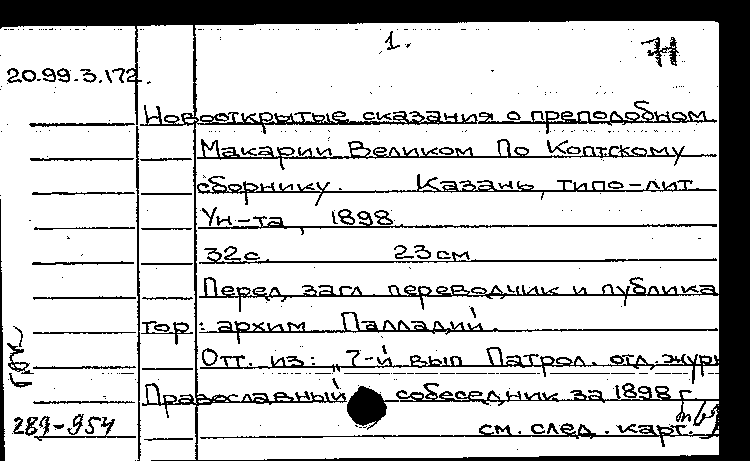 1.
71
20.99.3.172.
Новооткрытые сказания о преподобном
Макарии Великом По Коптскому
сборнику. Казань, типо-лит.
Ун-та, 1898.
32с. 23см
Перед загл переводчик и публика
тор: архим Палладий.
Отт. из: „7-й вып Патрол. отд. журн
Православный собеседник за 1898 г
289-954
см. след. карт.